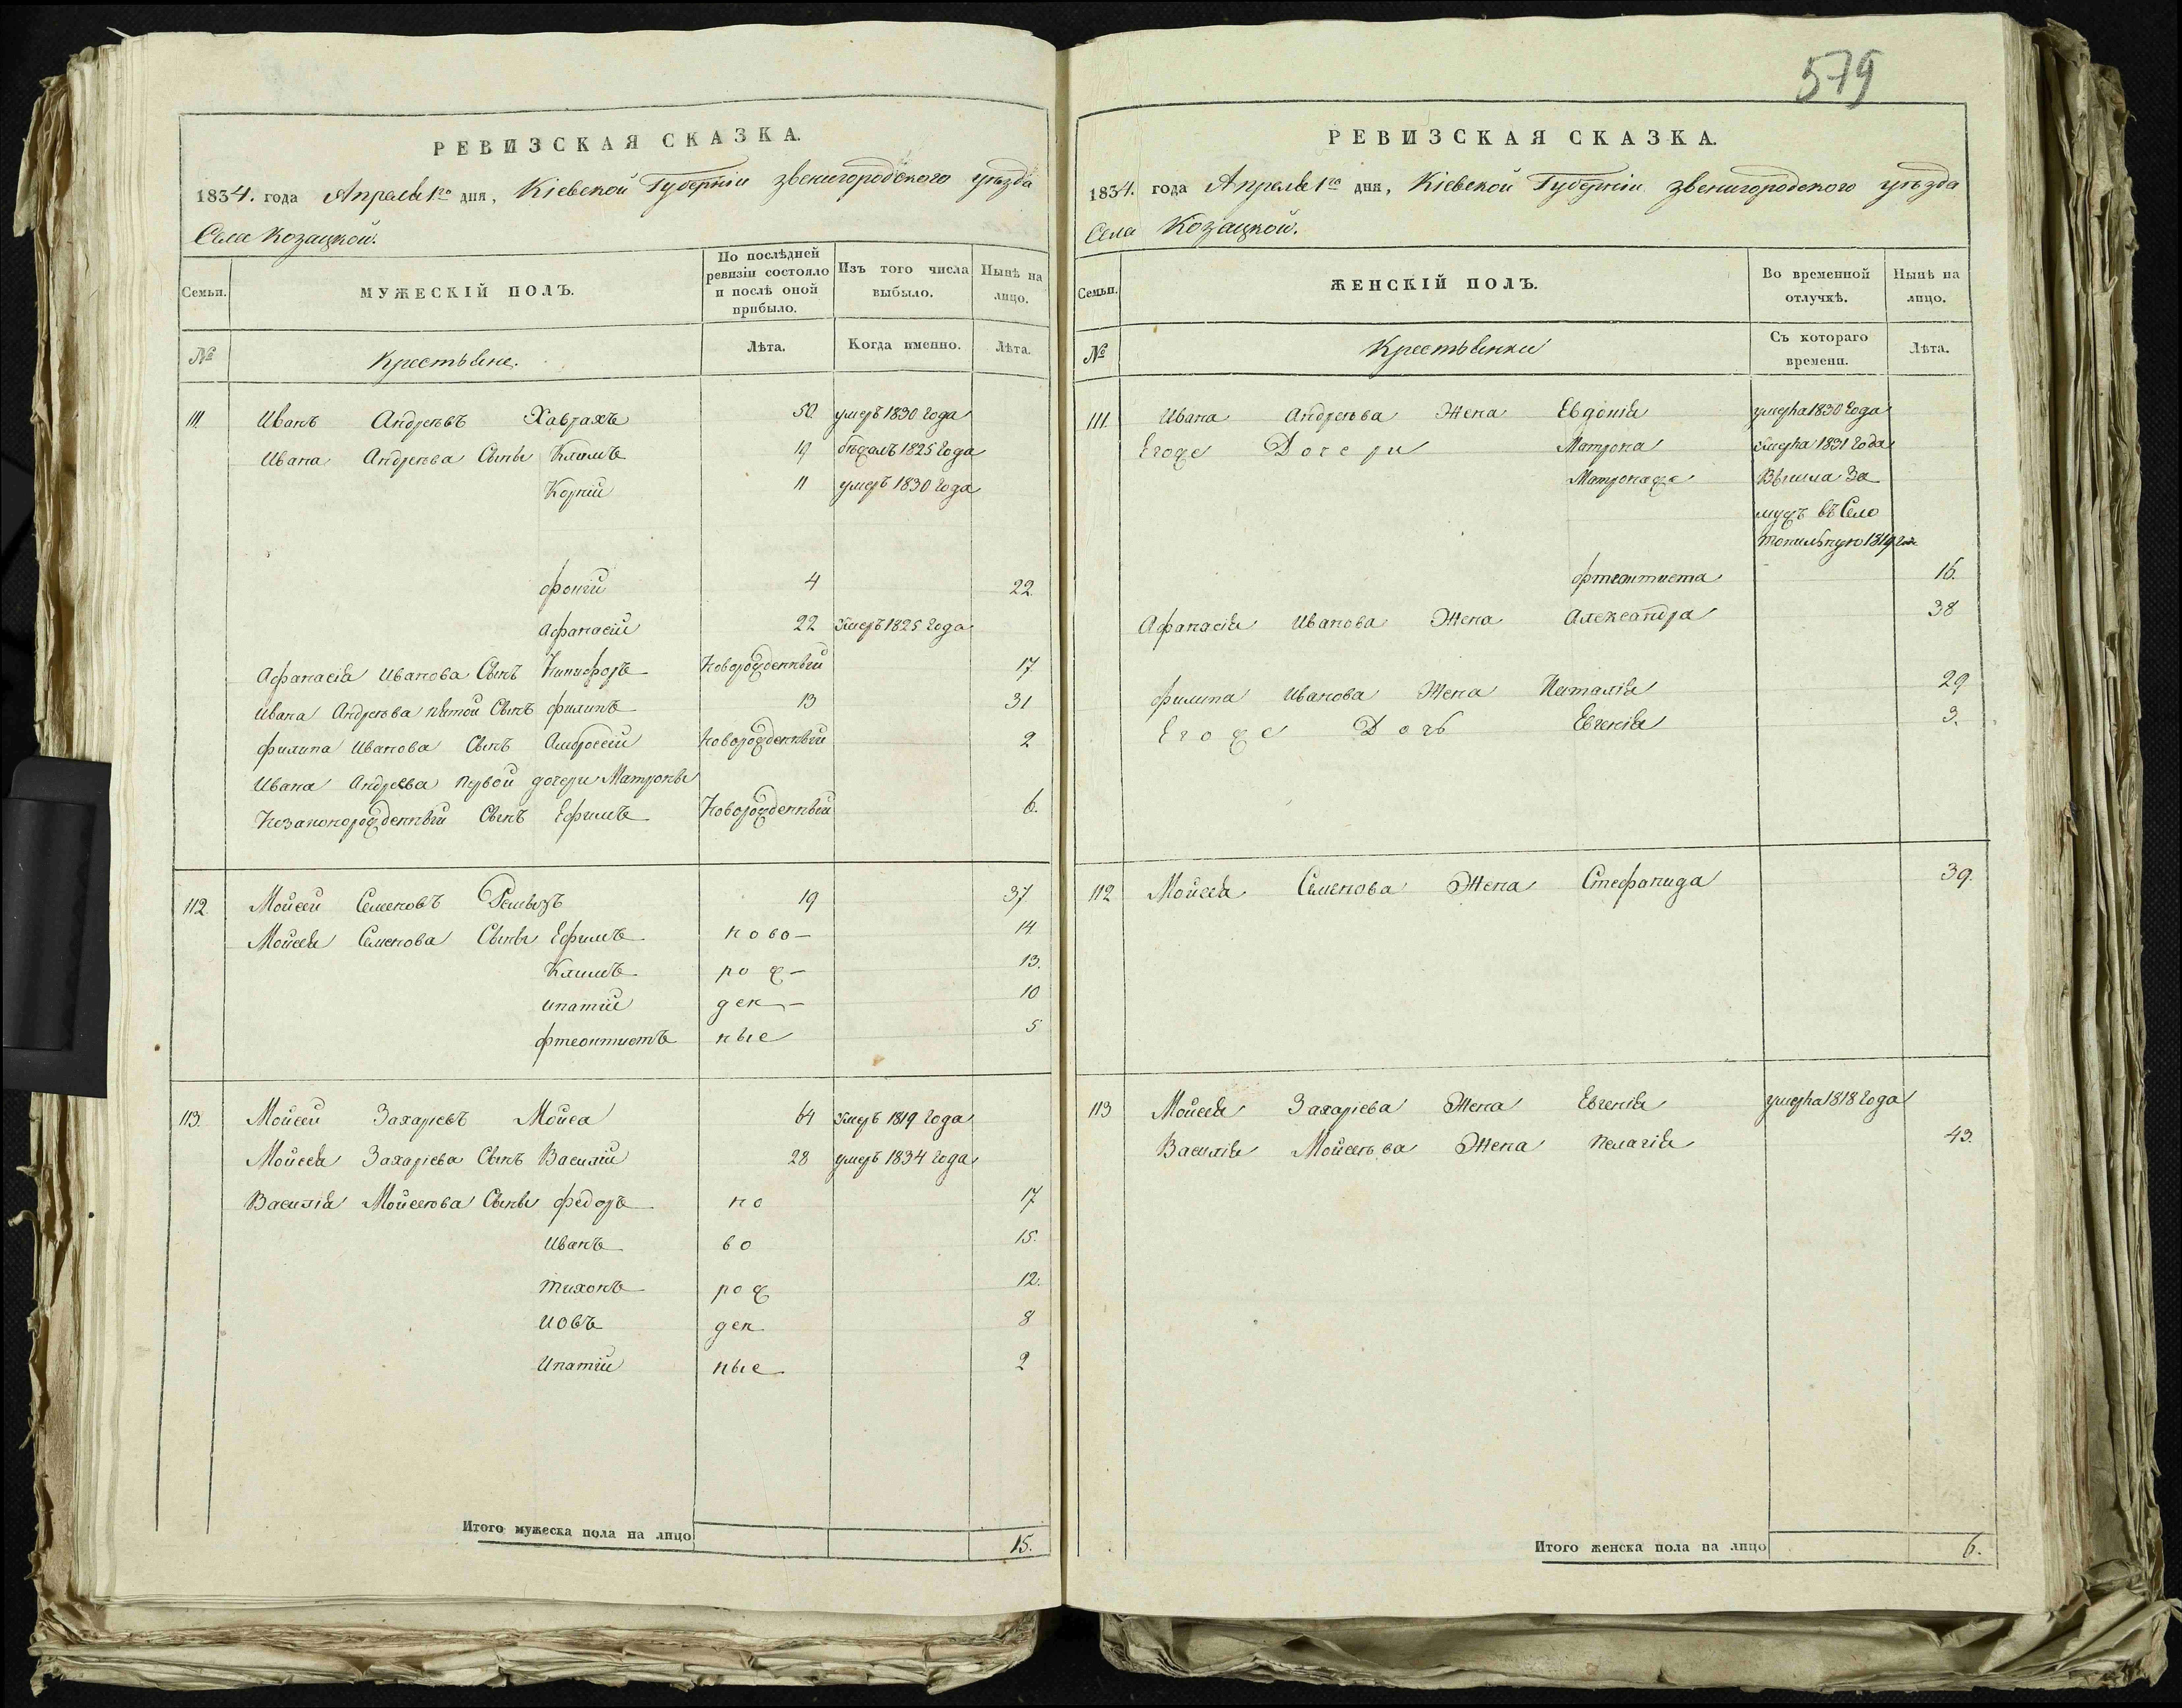 579
РЕВИЗСКАЯ СКАЗКА.
1834. года Апреля 1го дня, Кіевской Губерніи звенигородского уѣзда
Села Козацкой.
Семьи.
МУЖЕСКІЙ ПОЛЪ.
По послѣдней ревизіи состояло и послѣ оной прибыло.
Изъ того числа выбыло.
Нынѣ на лицо.
№
Крестьяне.
Лѣта.
Когда именно.
Лѣта.
111 Иванъ Андреевъ Хаврахъ 50 умеръ 1830 года
Ивана Андреева Сыны Климъ 19 бѣжалъ 1825 года
Корній 11 умеръ 1830 года
4 22.
Афанасій 22 умеръ 1825 года
Афанасія Иванова Сынъ Никифоръ Новорожденный 17
Ивана Андреева пятой Сынъ филипъ 13 31
филипа Иванова Сынъ Амбросій Новорожденный 2
Ивана Андреева первой дочери Матроны
Незаконорожденный Сынъ Ефимъ Новорожденный 6.
112. Мойсей Семеновъ 19 37
Мойсея Семенова Сыны Ефимъ ново- 14.
Климъ рож- 13.
ипатій ден- 10
фтеоктистъ ные 5
113. Мойсей Захаріевъ Мойса 64 умеръ 1819 года
Мойсея Захаріева Сынъ Василій 28 умеръ 1834 года
Василія Мойсеева Сыны федоръ но 17
Иванъ во 15.
Тихонъ рож 12.
Иовъ ден 8
Ипатій ные 2
Итого мужеска пола на лицо 15.
РЕВИЗСКАЯ СКАЗКА.
1834. года Апреля 1го дня, Кіевской Губерніи звенигородского уѣзда
Села Козацкой.
Семьи.
ЖЕНСКІЙ ПОЛЪ.
Во временной отлучкѣ.
Нынѣ на лицо.
№
Крестьянки
Съ котораго времени.
Лѣта.
111. Ивана Андреева Жена Евдокія умерла 1830 года
Егоже Дочери Матрона умерла 1831 года
Матронаже Вышла За
мужъ въ Село
1819 года
фтеоктиста 16.
Афанасія Иванова Жена Александра 38
филипа Иванова Жена Наталія 29
Егоже Дочь Евгенія 3.
112 Мойсея Семенова Жена Стефанида 39.
113 Мойсея Захаріева Жена Евгенія умерла 1818 года
Василія Мойсеева Жена пелагія 43.
Итого женска пола на лицо 6.